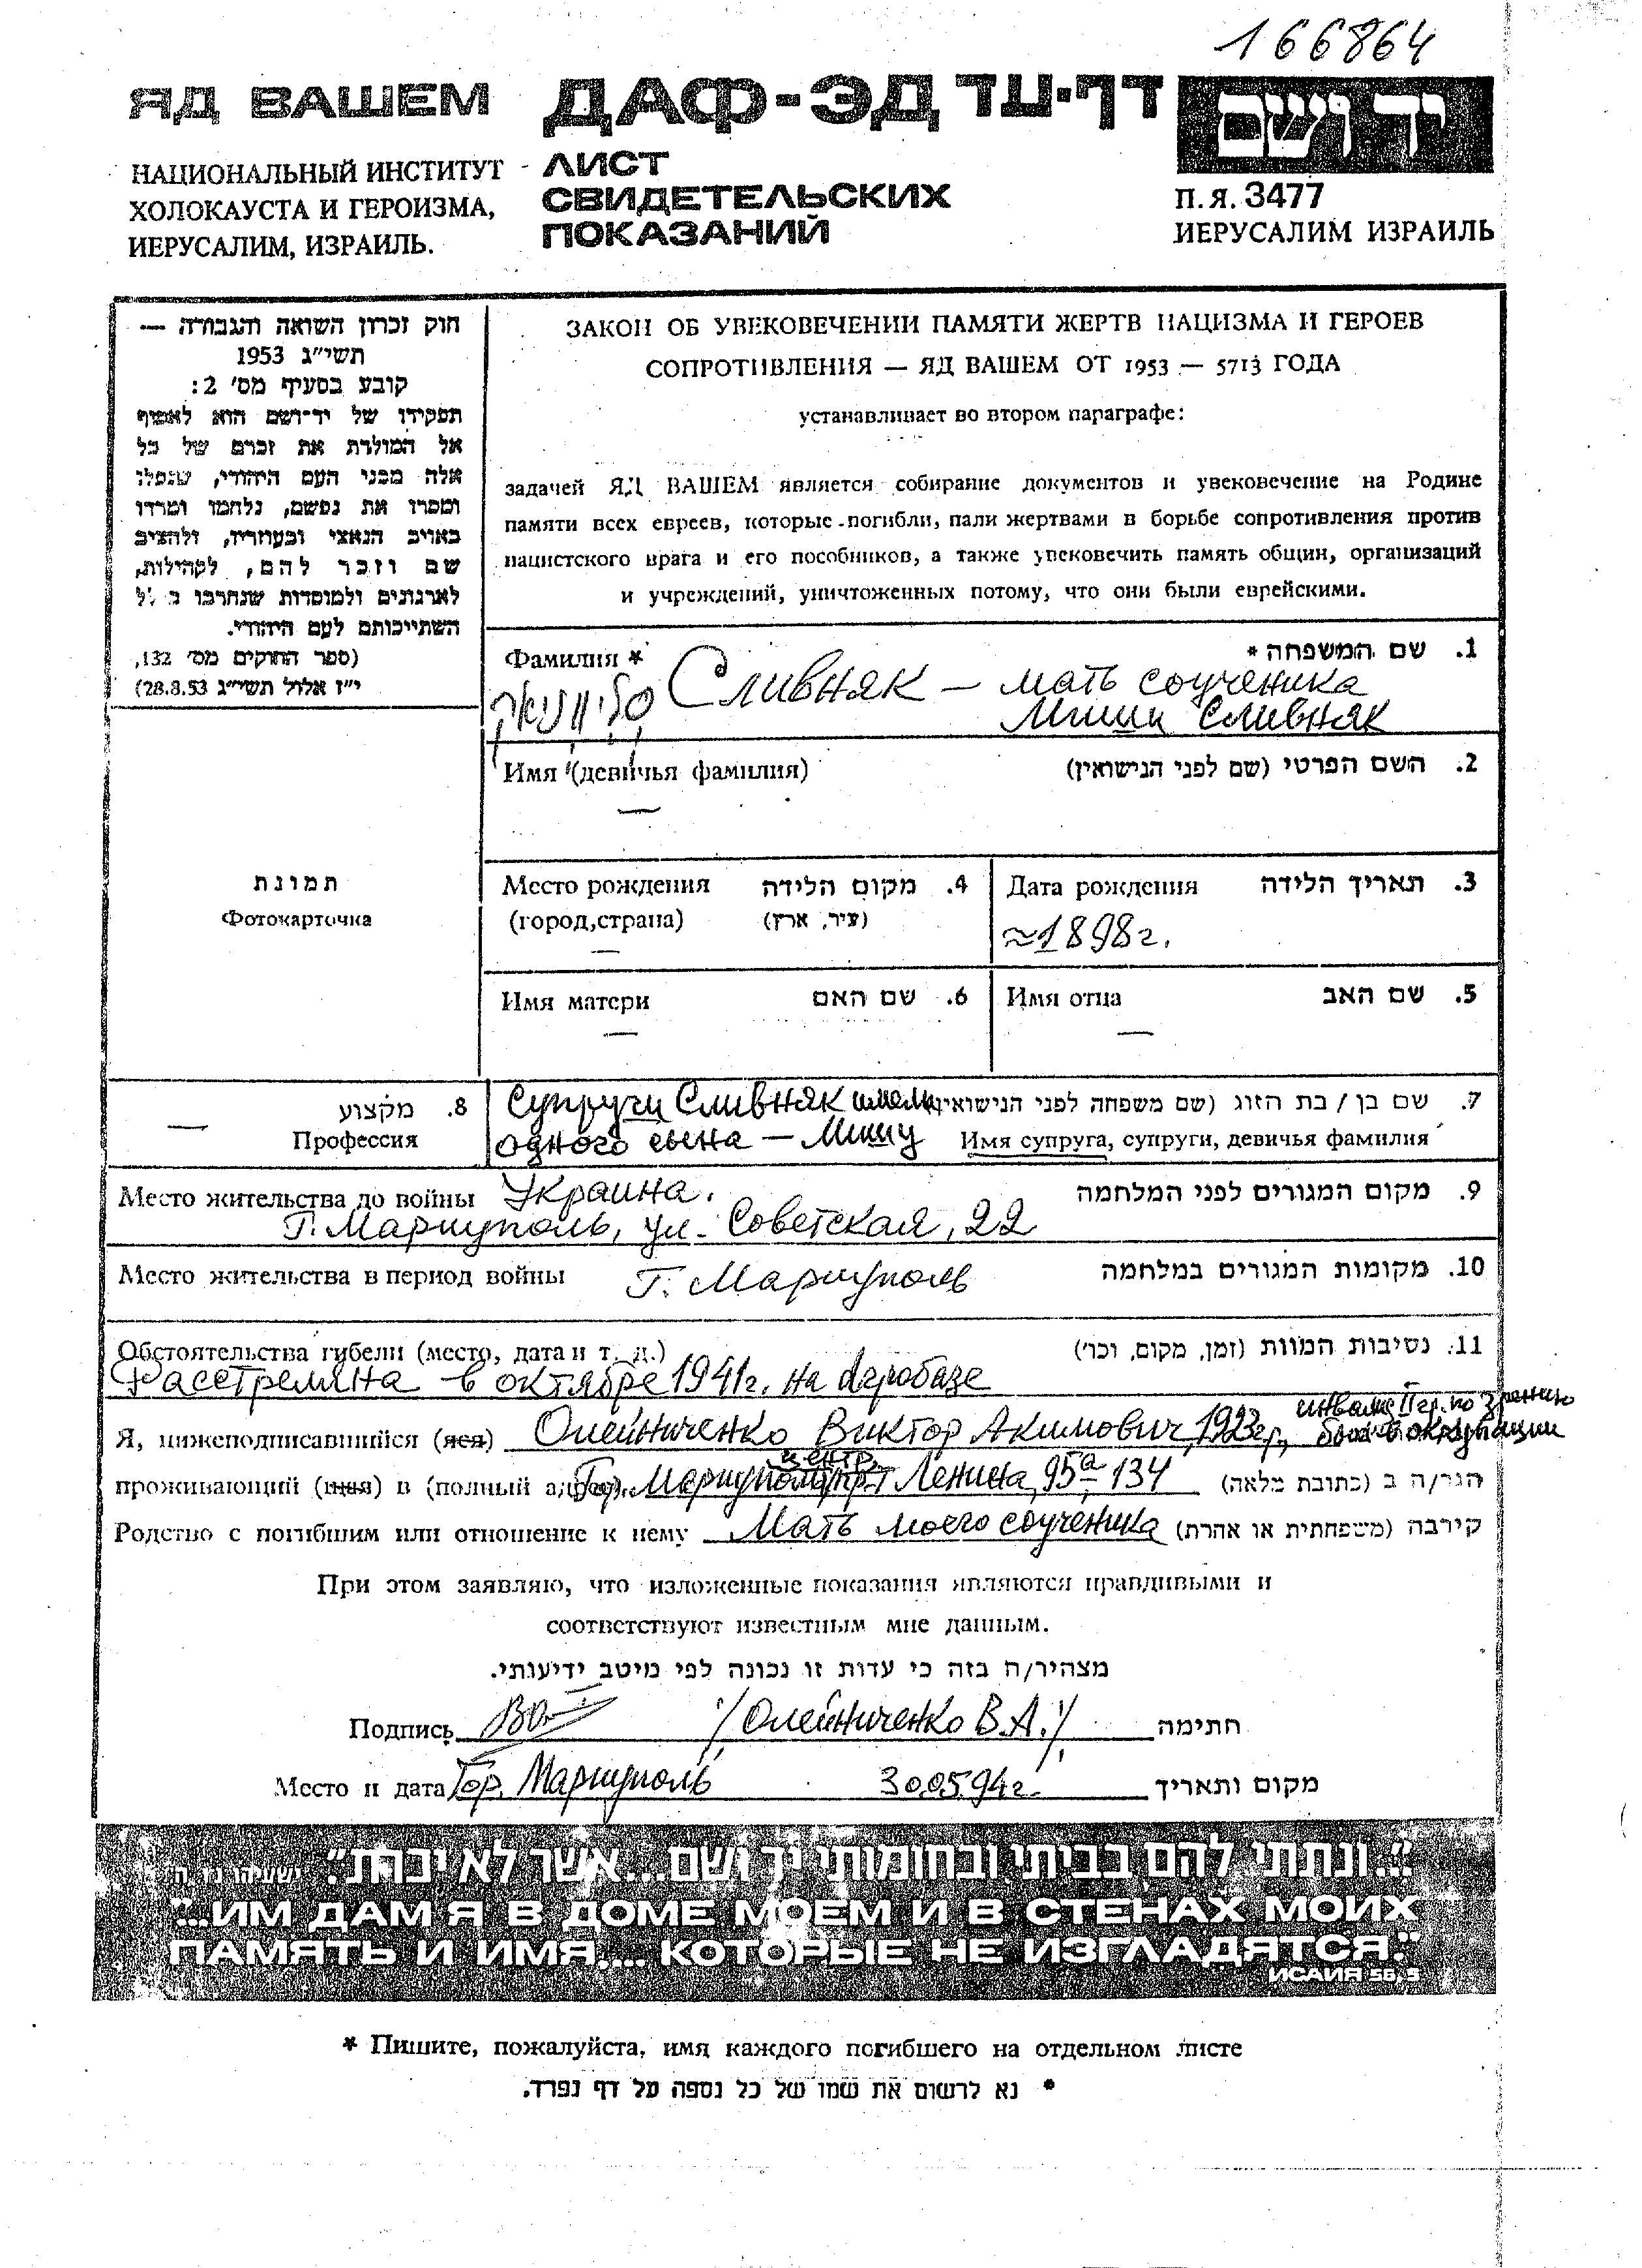 166864
ЯД ВАШЕМ
ДАФ-ЭД דף-עד
יד ושם
НАЦИОНАЛЬНЫЙ ИНСТИТУТ
ХОЛОКАУСТА И ГЕРОИЗМА,
ИЕРУСАЛИМ, ИЗРАИЛЬ.
ЛИСТ
СВИДЕТЕЛЬСКИХ
ПОКАЗАНИЙ
П.Я. 3477
ИЕРУСАЛИМ ИЗРАИЛЬ
חוק זכרון השואה והגבורה —
תשי״ג 1953
קובע בסעיף מס׳ 2:
תפקידו של יד־ושם הוא לאסוף
אל המולדת את זכרם של כל
אלה מבני העם היהודי, שנפלו
ומסרו את נפשם, נלחמו ומרדו
באויב הנאצי ובעוזריו, ולהציב
שם וזכר להם, לקהילות,
לארגונים ולמוסדות שנחרבו בגלל
השתייכותם לעם היהודי.
(ספר החוקים מס׳ 132,
י״ז אלול תשי״ג 28.8.53)
ЗАКОН ОБ УВЕКОВЕЧЕНИИ ПАМЯТИ ЖЕРТВ НАЦИЗМА И ГЕРОЕВ
СОПРОТИВЛЕНИЯ — ЯД ВАШЕМ ОТ 1953 — 5713 ГОДА
устанавливает во втором параграфе:
задачей ЯД ВАШЕМ является собирание документов и увековечение на Родине
памяти всех евреев, которые погибли, пали жертвами в борьбе сопротивления против
нацистского врага и его пособников, а также увековечить память общин, организаций
и учреждений, уничтоженных потому, что они были еврейскими.
Фамилия * Сливняк — мать соученика 1. שם המשפחה *
סליווניאק Миши Сливняк
Имя (девичья фамилия) 2. השם הפרטי (שם לפני הנישואין)
—
תמונת
Фотокарточка
Место рождения 4. מקום הלידה
(город,страна) (עיר, ארץ)
—
Дата рождения 3. תאריך הלידה
≈1898г.
Имя матери 6. שם האם
—
Имя отца 5. שם האב
—
8. מקצוע
— Профессия
Супруги Сливняк имели 7. שם בן / בת הזוג (שם משפחה לפני הנישואין)
одного сына — Мишу Имя супруга, супруги, девичья фамилия
Место жительства до войны Украина. 9. מקום המגורים לפני המלחמה
Г. Мариуполь, ул. Советская, 22
Место жительства в период войны Г. Мариуполь 10. מקומות המגורים במלחמה
Обстоятельства гибели (место, дата и т. д.) 11. נסיבות המוות (זמן, מקום, וכו׳)
Расстреляна в октябре 1941г. на агробазе
инвалид II гр. по зрению
Я, нижеподписавшийся (яся) Олейниченко Виктор Акимович, 1923г р., был в оккупации
центр.
проживающий (щая) в (полный адрес) Гор. Мариуполь, пр-т Ленина, 95а-134 הגר/ה ב (כתובת מלאה)
Родство с погибшим или отношение к нему Мать моего соученика קירבה (משפחתית או אחרת)
При этом заявляю, что изложенные показания являются правдивыми и
соответствуют известным мне данным.
מצהיר/ה בזה כי עדות זו נכונה לפי מיטב ידיעותי.
Подпись /Олейниченко В.А./ חתימה
Место и дата Гор. Мариуполь 30.05.94г. מקום ותאריך
"...ונתתי להם בביתי ובחומותי יד ושם... אשר לא יכרת." ישעיהו נו ה׳
"...ИМ ДАМ Я В ДОМЕ МОЕМ И В СТЕНАХ МОИХ
ПАМЯТЬ И ИМЯ.... КОТОРЫЕ НЕ ИЗГЛАДЯТСЯ."
ИСАИЯ 56, 5
* Пишите, пожалуйста, имя каждого погибшего на отдельном листе
* נא לרשום את שמו של כל נספה על דף נפרד.